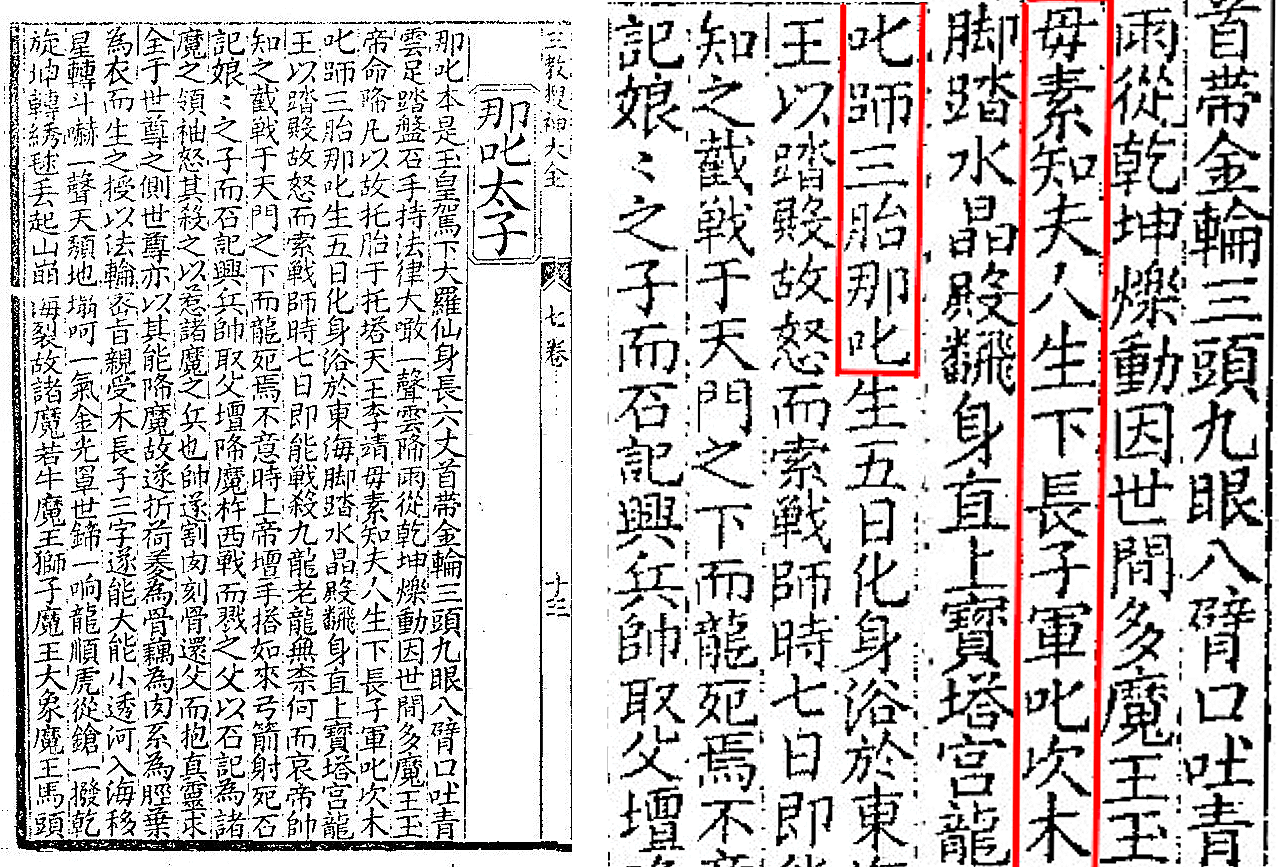 三教搜神大全
七卷
十三
那叱太子
那叱本是玉皇駕下大羅仙身長六丈首帶金輪三頭九眼八臂口吐青
雲足踏盤石手持法律大噉一聲雲降雨從乾坤爍動因世間多魔王玉
帝命降凡以故托胎于托塔天王李靖母素知夫人生下長子軍叱次木
叱師三胎那叱生五日化身浴於東海脚踏水晶殿飜身直上寶塔宮龍
王以踏殿故怒而索戰師時七日即能戰殺九龍老龍無柰何而哀帝帥
知之截戰于天門之下而龍死焉不意時上帝壇手搭如來弓箭射死石
記娘〻之子而石記興兵帥取父壇降魔杵西戰而戮之父以石記為諸
魔之領袖怒其殺之以惹諸魔之兵也帥遂割肉刻骨還父而抱真靈求
全于世尊之側世尊亦以其能降魔故遂折荷菱為骨藕為肉系為脛葉
為衣而生之授以法輪密旨親受木長子三字遂能大能小透河入海移
星轉斗嚇一聲天頹地塌呵一氣金光罩世一响龍順虎從鎗一撥乾
旋坤轉綉毬丟起山崩海裂故諸魔若牛魔王獅子魔王大象魔王馬頭
首帶金輪三頭九眼八臂口吐青
雨從乾坤爍動因世間多魔王玉
母素知夫人生下長子軍叱次木
脚踏水晶殿飜身直上寶塔宮龍
叱師三胎那叱生五日化身浴於東
王以踏殿故怒而索戰師時七日即
知之截戰于天門之下而龍死焉不
記娘〻之子而石記興兵帥取父壇